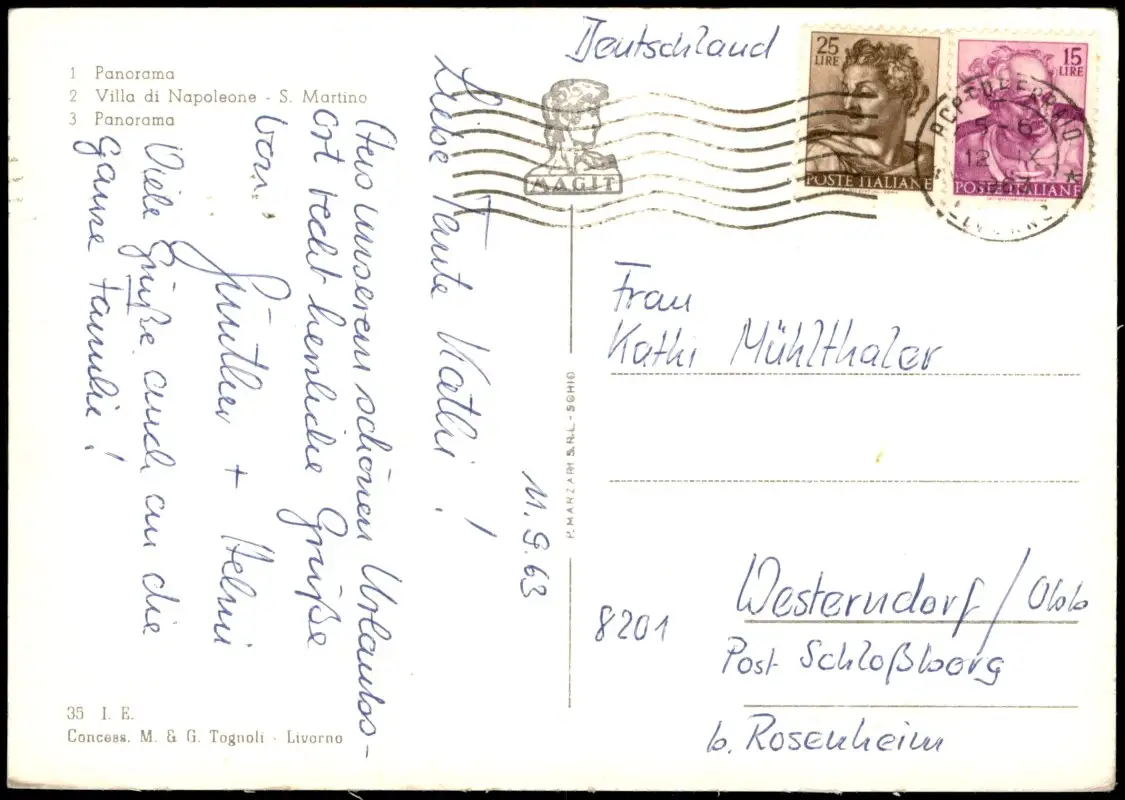 1 Panorama
2 Villa di Napoleone - S. Martino
3 Panorama
11.9.63
Liebe Tante Kathi!
Aus unserem schönen Urlaubs-
ort recht herzliche Grüße
von
Günther + Helmi
Viele Grüße auch an die
ganze Familie!
35 I. E.
Concess. M. & G. Tognoli - Livorno
P. MANZARI S.R.L. - SCHIO
Deutschland
MAGIT
25
LIRE
POSTE ITALIANE
15
LIRE
POSTE ITALIANE
5-6
12
Frau
Kathi Mühlthaler
8201
Westerndorf/Obb
Post Schloßberg
b. Rosenheim